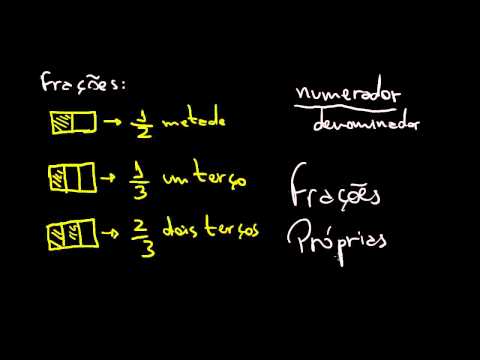 Frações:
→ 1/2 metade
→ 1/3 um terço
→ 2/3 dois terços
numerador
denominador
Frações
Próprias